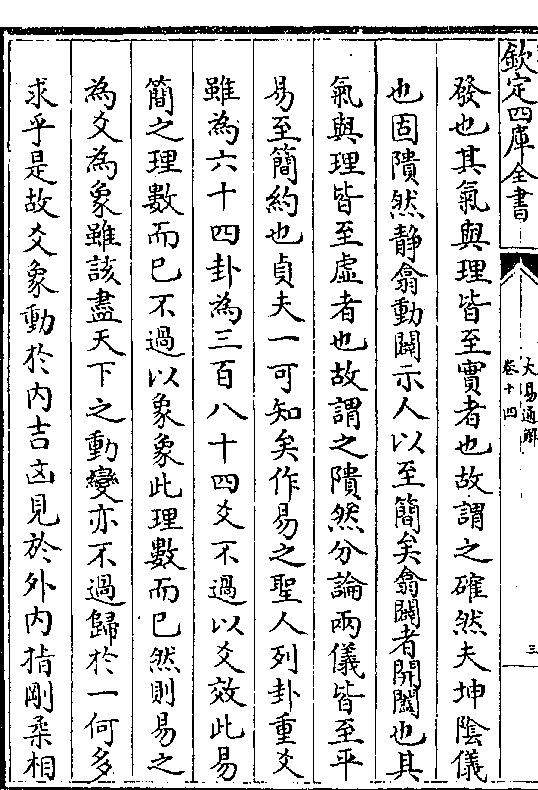 欽定四庫全書
大易通解
卷十四
三
發也其氣與理皆至實者也故謂之確然夫坤陰儀
也固隤然静翕動闢示人以至簡矣翕闢者開闔也其
氣與理皆至虛者也故謂之隤然分論兩儀皆至平
易至簡約也貞夫一可知矣作易之聖人列卦重爻
雖為六十四卦為三百八十四爻不過以爻效此易
簡之理數而已不過以象象此理數而已然則易之
為爻為象雖該盡天下之動變亦不過歸於一何多
求乎是故爻象動於內吉凶見於外內指剛柔相